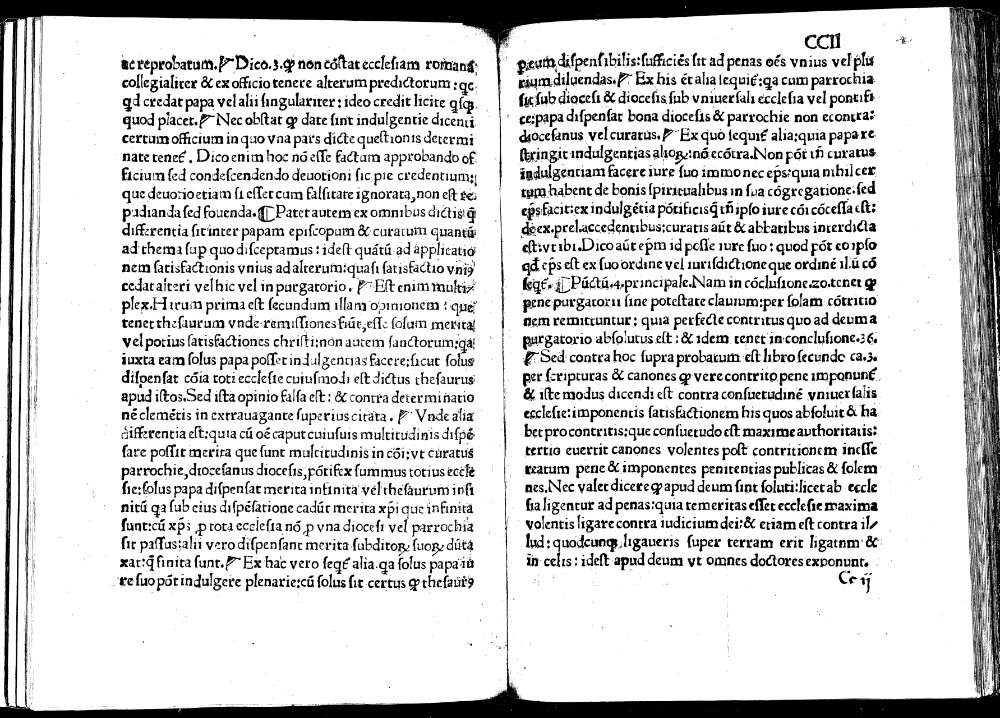 ac reprobatum. Dico.3.ꝙ non cõstat ecclesiam romanã
collegialiter & ex officio tenere alterum predictorum: qc
qd credat papa vel alii singulariter: ideo credit licite qsq̃
quod placet. Nec obstat ꝙ date sint indulgentie dicenti
certum officium in quo vna pars dicte questionis determi
nate teneť. Dico enim hoc nõ esse factum approbando of
ficium sed condescendendo deuotioni sic pie credentium:
que deuotio etiam si esset cum falsitate ignorata, non est re
pudianda sed fouenda. Patet autem ex omnibus dictis q̃
differentia sit inter papam episcopum & curatum quantũ
ad thema sup quo disceptamus: idest quãtũ ad applicatio
nem satisfactionis vnius ad alterum: quasi satisfactio vniꝰ
cedat alteri vel hic vel in purgatorio. Est enim multi
plex. Harum prima est secundum illam opinionem: que
tenet thesaurum vnde remissiones fiũt, esse solum merita
vel potius satisfactiones christi: non autem sanctorum: qa
iuxta eam solus papa posset indulgentias facere: sicut solus
dispensat cõia toti ecclesie cuiusmodi est dictus thesaurus
apud istos. Sed ista opinio falsa est: & contra determinatio
nẽ clemẽtis in extrauagante superius citata. Vnde alia
differentia est: quia cũ oẽ caput cuiusuis multitudinis dispẽ
sare possit merita que sunt multitudinis in cõi: vt curatus
parrochie, diocesanus diocesis, põtifex summus totius eccle
sie: solus papa dispensat merita infinita vel thesaurum infi
nitũ qa sub eius dispẽsatione cadũt merita xp̃i que infinita
sunt: cũ xp̃s ꝓ tota ecclesia nõ ꝓ vna diocesi vel parrochia
sit passus: alii vero dispensant merita subditoꝝ suoꝝ dũta
xat: q̃ finita sunt. Ex hac vero seqť alia. qa solus papa iu
re suo põt indulgere plenarie: cũ solus sit certus ꝙ thesaurꝰ
CCII
dispensibilis: sufficiẽs sit ad penas oẽs vnius vel plu
rium diluendas. Ex his ẽt alia sequiť: qa cum parrochia
sit sub diocesi & diocesis sub vniuersali ecclesia vel pontifi
ce: papa dispensat bona diocesis & parrochie non econtra:
diocesanus vel curatus. Ex quo sequiť alia: quia papa re
stringit indulgentias alioꝝ: nõ ecõtra. Non põt tñ curatus
indulgentiam facere iure suo immo nec ep̃s: quia nihil cer
tum habent de bonis spiritualibus in sua cõgregatione. sed
ep̃s facit: ex indulgẽtia põtificis q̃ tñ ipso iure cõi cõcessa est:
de ex. prel. accedentibus: curatis aũt & abbatibus interdicta
est: vt ibi. Dico aũt ep̃m id posse iure suo: quod põt eo ipso
qđ ep̃s est ex suo ordine vel iurisdictione que ordinẽ il. ũ cõ
seqť. Pũctũ.4. principale. Nam in cõclusione.20. tenet ꝙ
pene purgatorii sine potestate clauium: per solam cõtritio
nem remittuntur: quia perfecte contritus quo ad deum a
purgatorio absolutus est: & idem tenet in conclusione.36.
Sed contra hoc supra probatum est libro secundo ca.3.
per scripturas & canones ꝙ vere contrito pene imponunť
& iste modus dicendi est contra consuetudinẽ vniuersalis
ecclesie: imponentis satisfactionem his quos absoluit & ha
bet pro contritis: que consuetudo est maxime authoritatis:
tertio euertit canones volentes post contritionem inesse
reatum pene & imponentes penitentias publicas & solem
nes. Nec valet dicere ꝙ apud deum sint soluti: licet ab eccle
sia ligentur ad penas: quia temeritas esset ecclesie maxima
volentis ligare contra iudicium dei: & etiam est contra il
lud: quodcunꝙ ligaueris super terram erit ligatum &
in celis: idest apud deum vt omnes doctores exponunt.
Cc ij